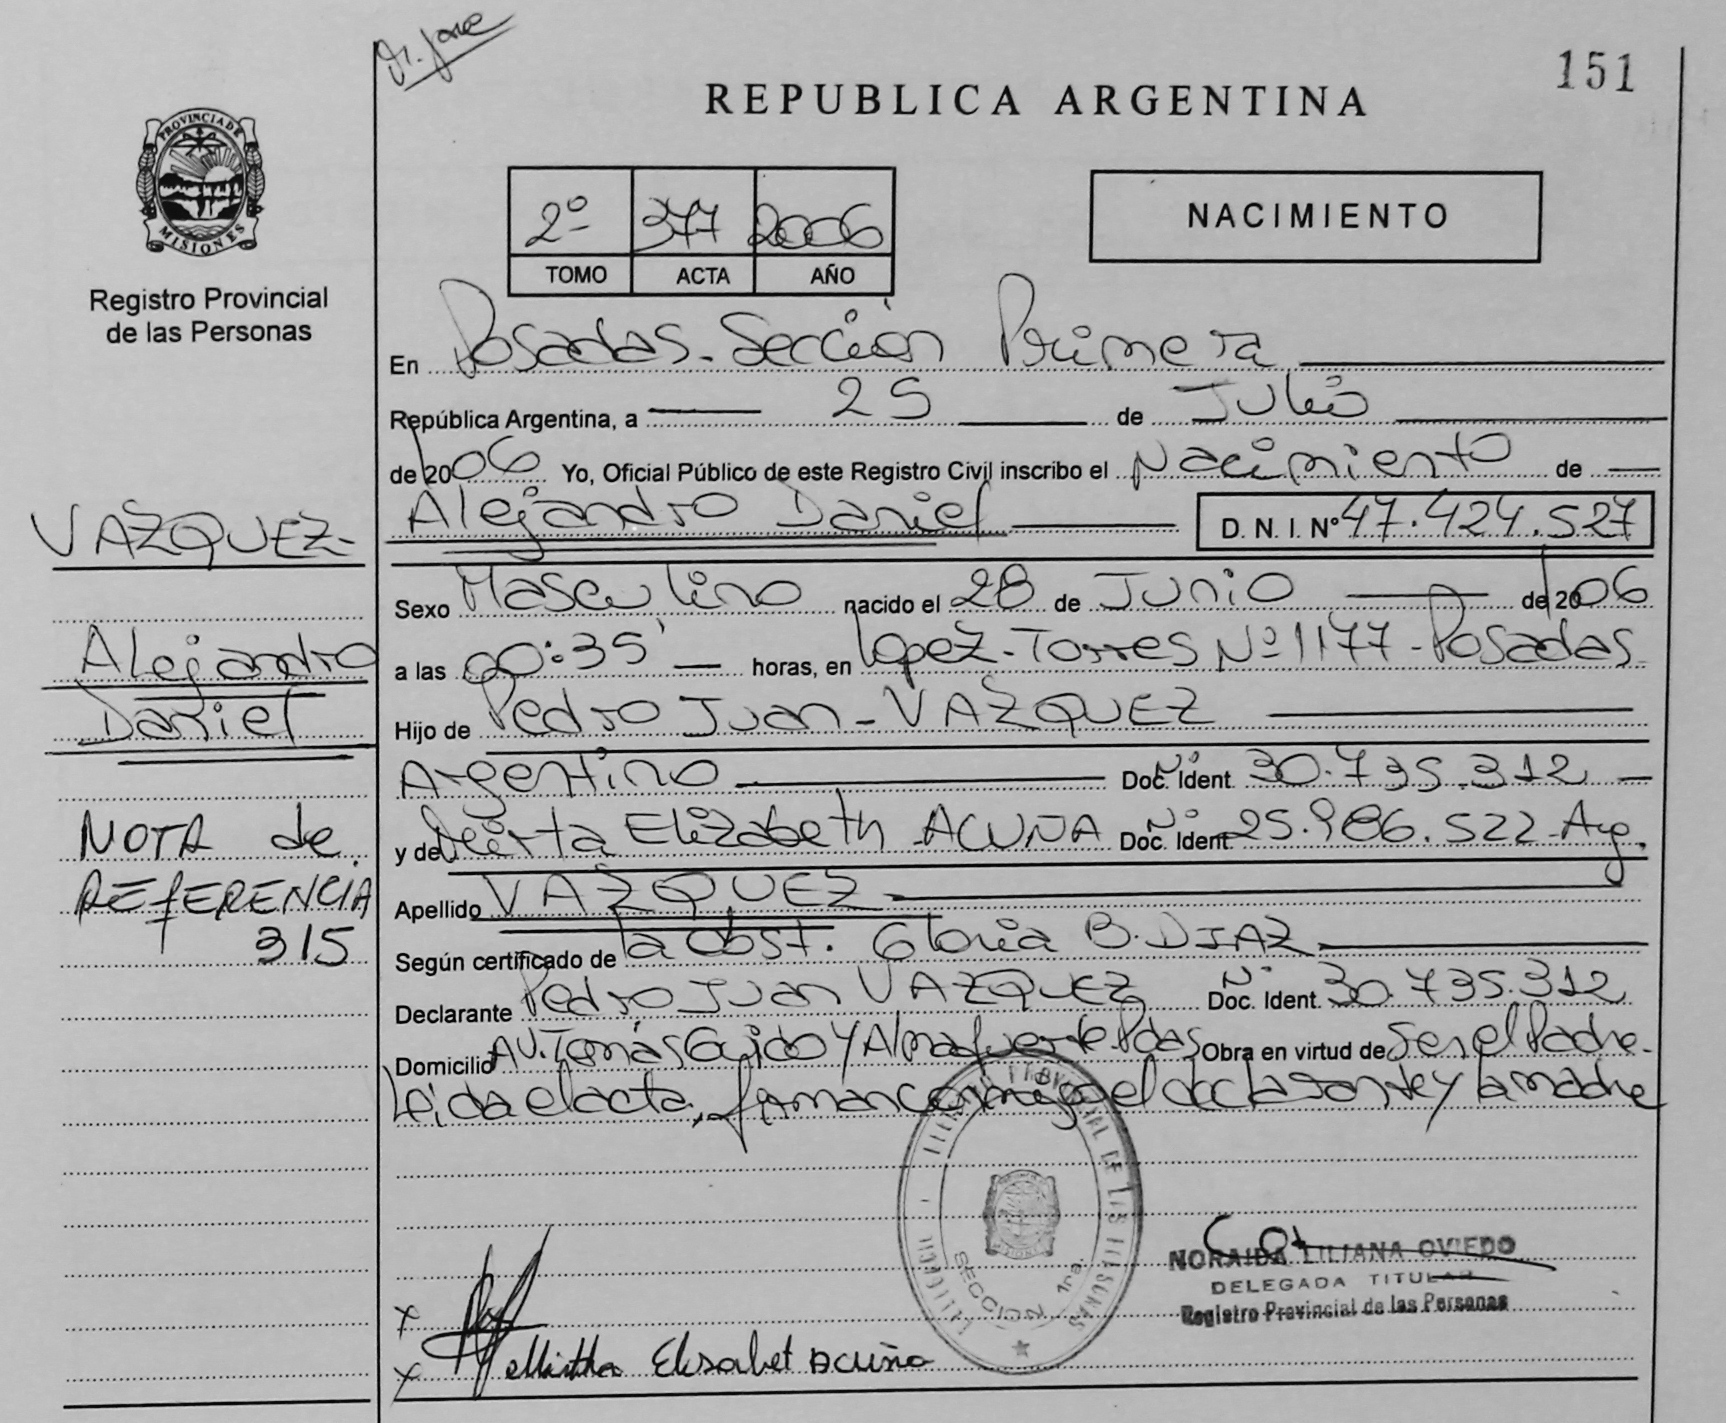 151
REPUBLICA ARGENTINA
PROVINCIA DE
MISIONES
Registro Provincial
de las Personas
2º 377 2006
TOMO ACTA AÑO
NACIMIENTO
En Posadas - Sección Primera
República Argentina, a 25 de Julio
de 2006 Yo, Oficial Público de este Registro Civil inscribo el Nacimiento de
Alejandro Daniel D. N. I. Nº 47.424.527
VAZQUEZ-
Sexo Masculino nacido el 28 de Junio de 2006
Alejandro
a las 00:35' horas, en Lopez-Torres Nº 1177-Posadas
Daniel
Hijo de Pedro Juan - VAZQUEZ
Argentino Doc. Ident. Nº 30.735.312
NOTA de
y de Mirta Elizabeth ACUÑA Doc. Ident. Nº 25.986.522-Arg.
REFERENCIA
Apellido VAZQUEZ
315
Según certificado de la obst. Gloria B. DIAZ
Declarante Pedro Juan VAZQUEZ Doc. Ident. Nº 30.735.312
Domicilio AV. Tomás Guido Y Almafuerte-Pdas Obra en virtud de Ser el Padre-
Leida el acta, firman conmigo el declarante y la madre
SECCION 1ra.
NORAIDA LILIANA OVIEDO
DELEGADA TITULAR
Registro Provincial de las Personas
x
x Mirtha Elisabet Acuña